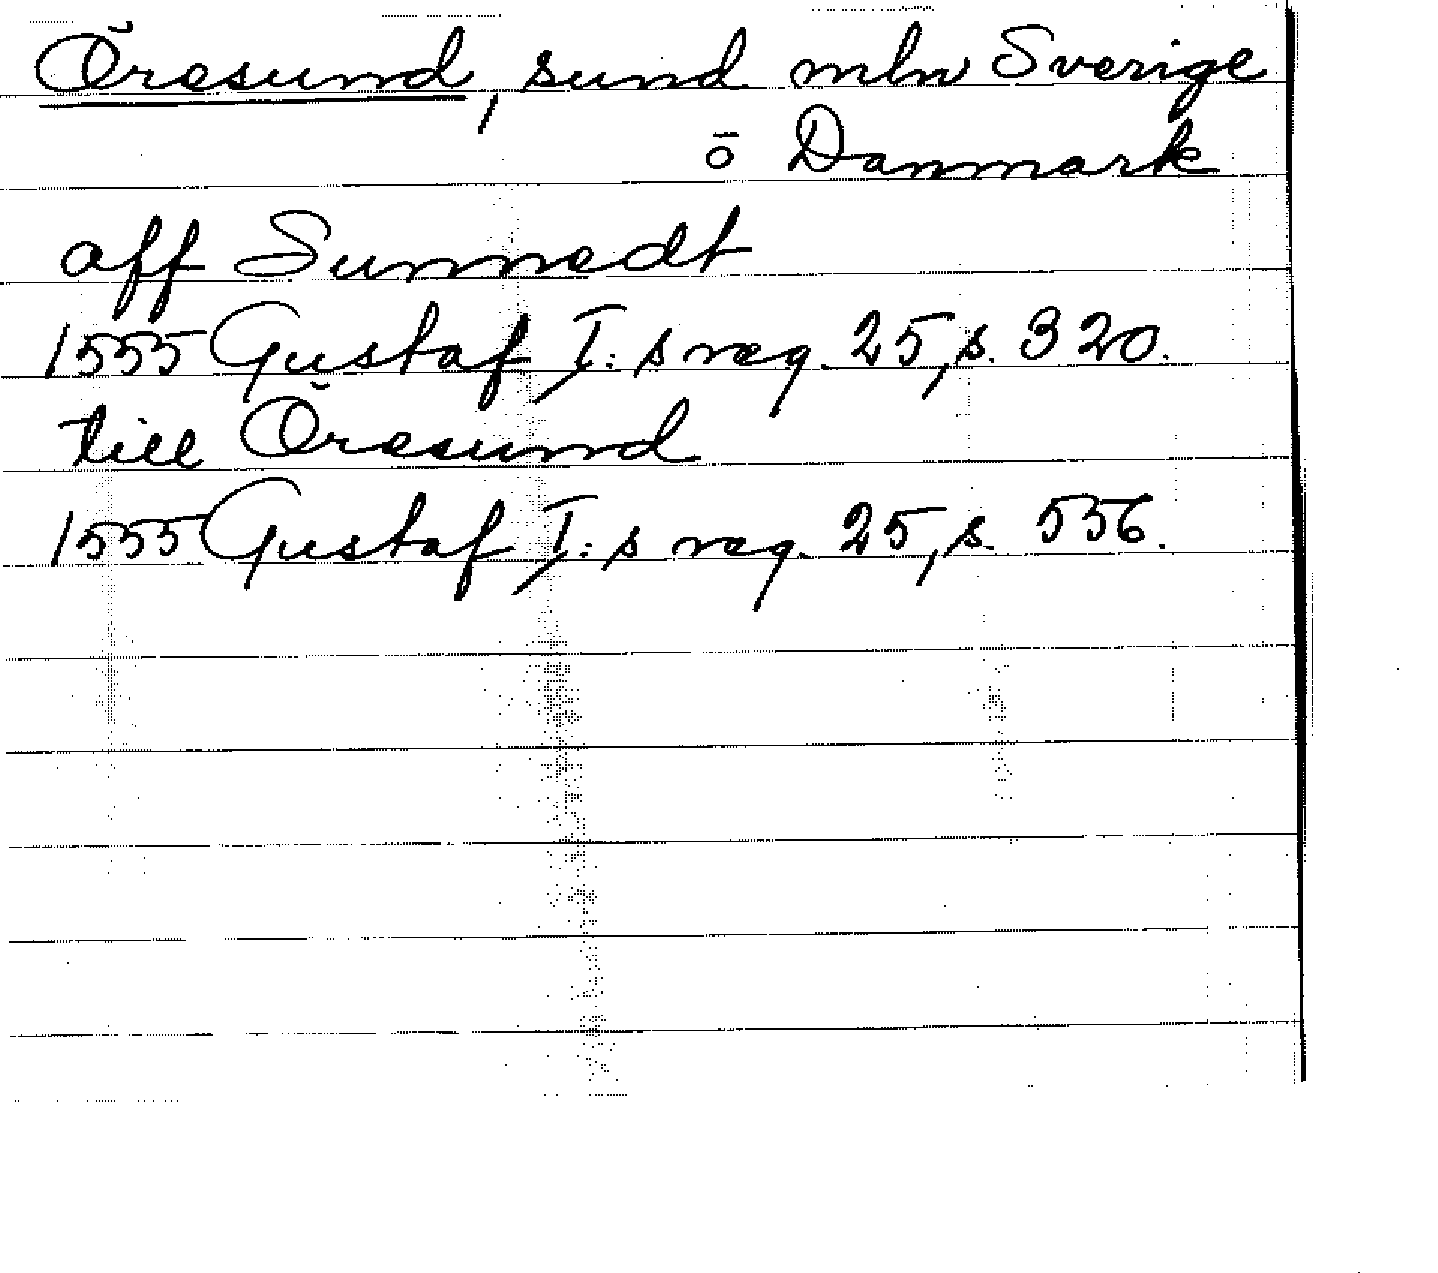 Öresund, sund mln Sverige
o Danmark
aff Sunnedt
1555 Gustaf I:s reg. 25, s. 320.
till Öresund
1555 Gustaf I:s reg. 25, s. 556.